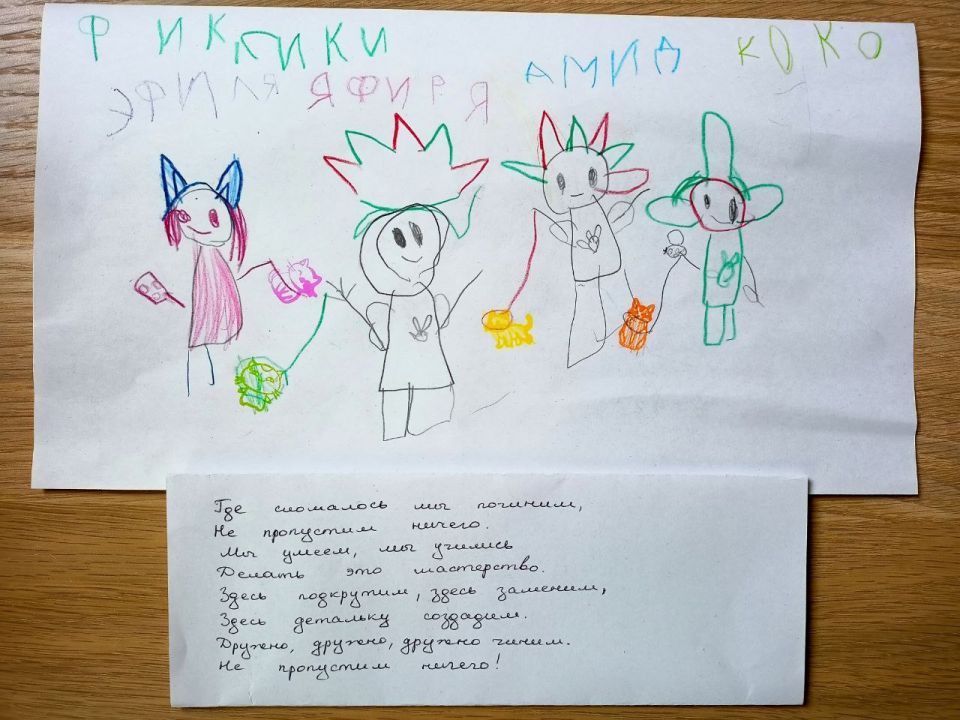 ФИКПИКИ АМИД КОКО
ЭФИЛЯ ЯФИРЯ
Где сломалось мы починим,
Не пропустим ничего.
Мы умеем, мы учились
Делать это мастерство.
Здесь подкрутим, здесь заменим,
Здесь детальку создадим.
Дружно, дружно, дружно чиним.
Не пропустим ничего!